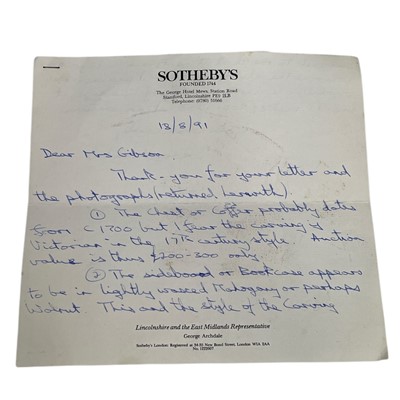 SOTHEBY'S
FOUNDED 1744
The George Hotel Mews, Station Road
Stamford, Lincolnshire PE9 2LB
Telephone: (0780) 51666
18/8/91
Dear Mrs Gibson
Thank-you for your letter and
the photographs (returned herewith).
① The Chest or Coffer probably dates
from c 1700 but I fear the carving is
Victorian in the 17th century style. Auction
value is thus £200-300 only.
② The sideboard or Bookcase appears
to be in lightly waxed Mahogany or perhaps
Walnut. This and the style of the Carving
Lincolnshire and the East Midlands Representative
George Archdale
Sotheby's London: Registered at 34-35 New Bond Street, London W1A 2AA